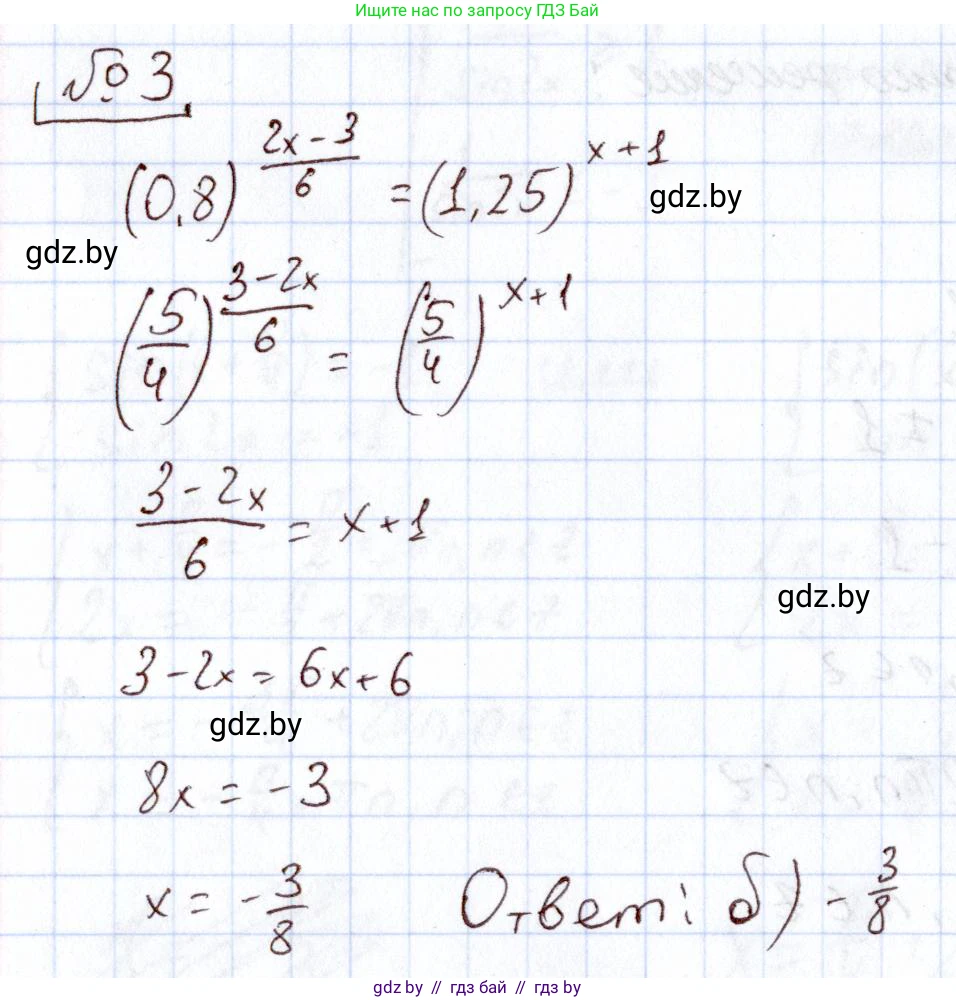 Ищите нас по запросу ГДЗ Бай
№ 3
(0,8)^((2x-3)/6) = (1,25)^(x+1)
gdz.by
gdz.by
(5/4)^((3-2x)/6) = (5/4)^(x+1)
(3-2x)/6 = x+1
gdz.by
3-2x = 6x+6
gdz.by
8x = -3
x = -3/8 Ответ: б) -3/8
gdz.by // гдз бай // gdz by